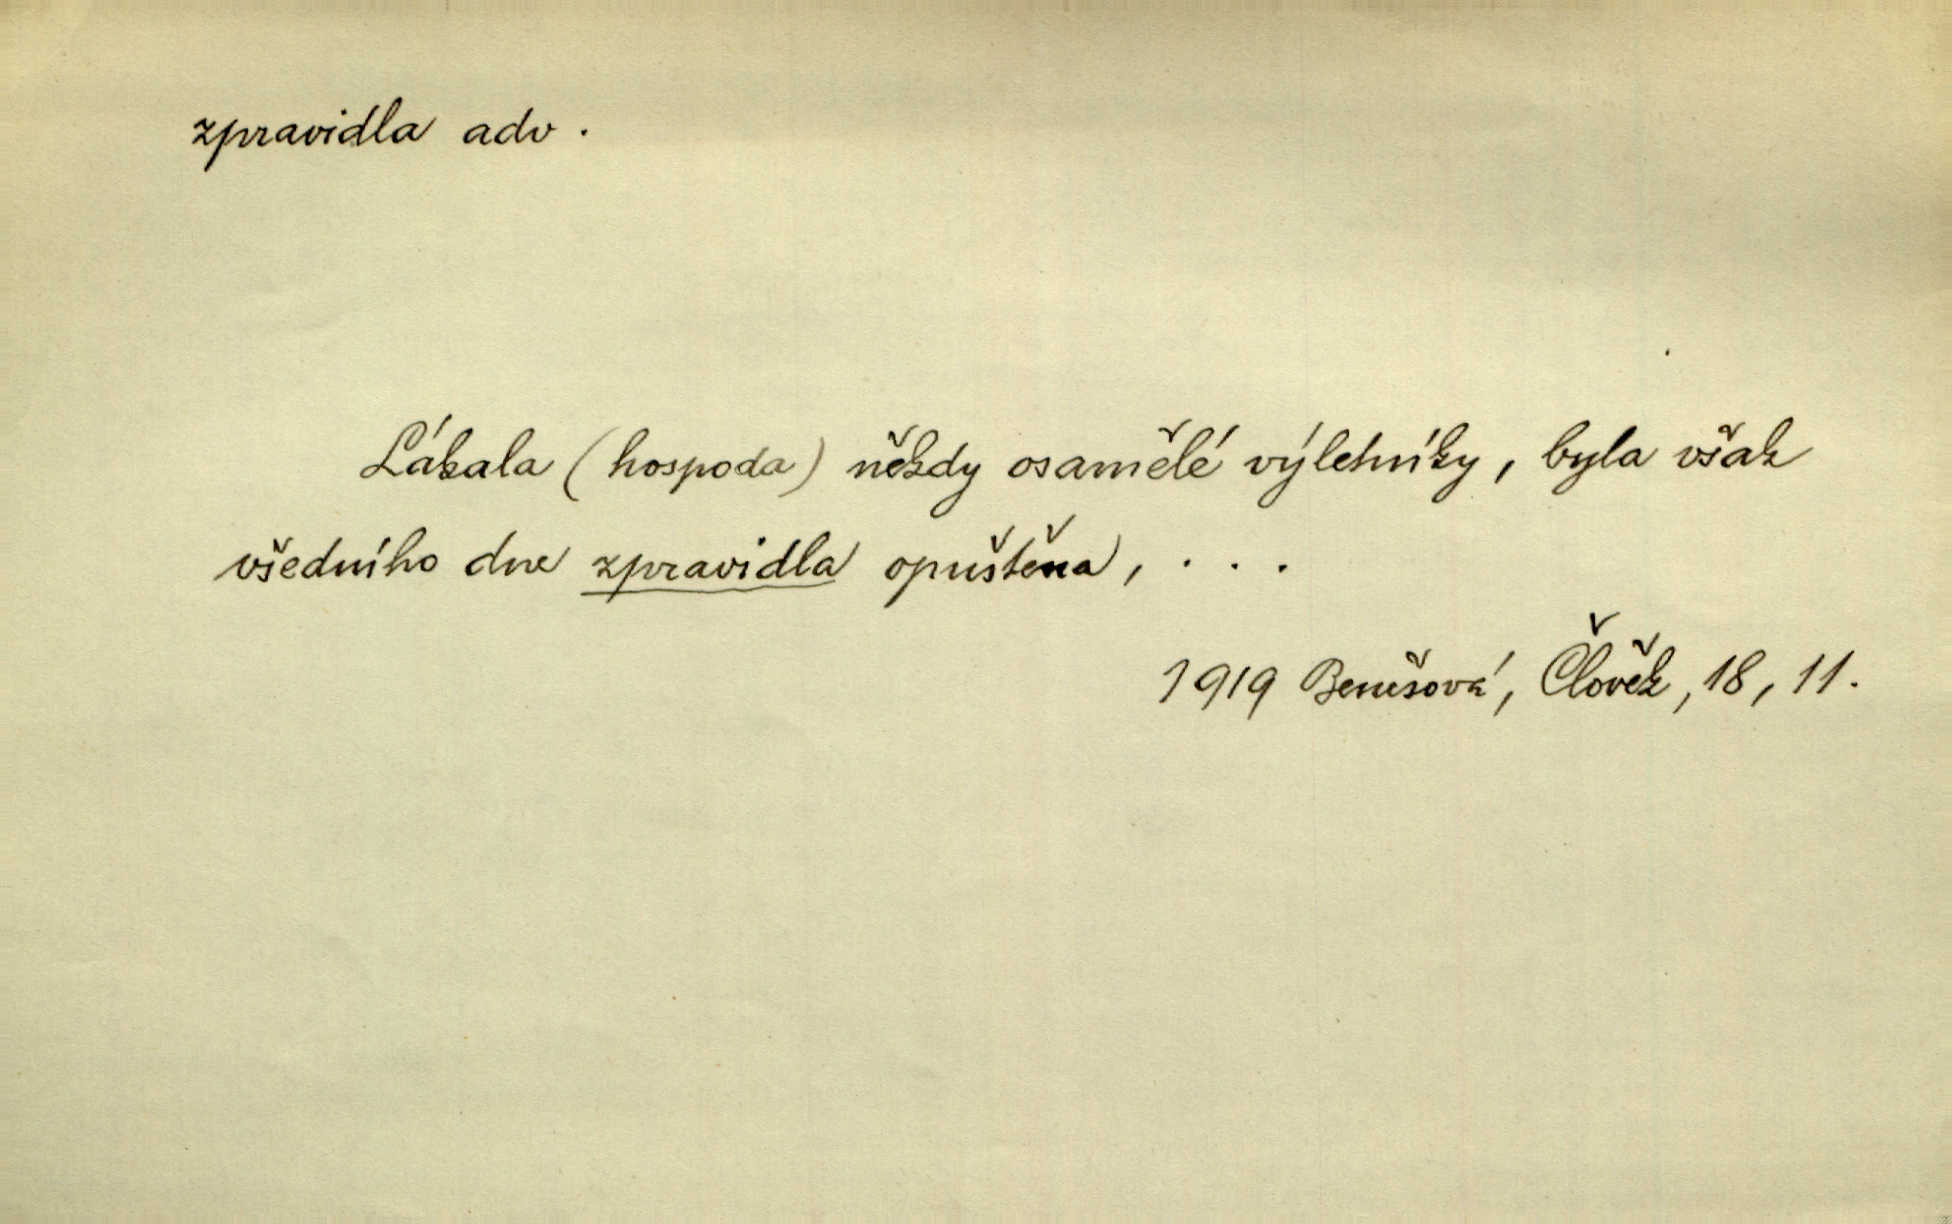 zpravidla adv.
Lákala (hospoda) někdy osamělé výletníky, byla však
všedního dne zpravidla opuštěna, ...
1919 Benešová, Člověk, 18, 11.